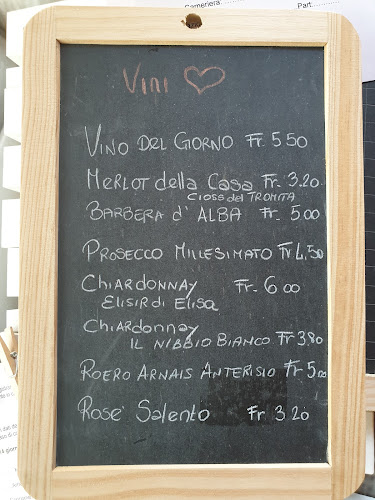 Cameriera:
Part:
Vini ♡
Vino Del Giorno Fr. 5.50
Merlot della Casa Fr. 3.20
Cioss del Tromta
Barbera d' Alba Fr. 5.00
Prosecco Millesimato Fr 4,50
Chiardonnay Fr. 6.00
Elisir di Elisa
Chiardonnay
il Nibbio Bianco Fr 3.80
Roero Arnais Anterisio Fr 5.00
Rose' Salento Fr 3.20